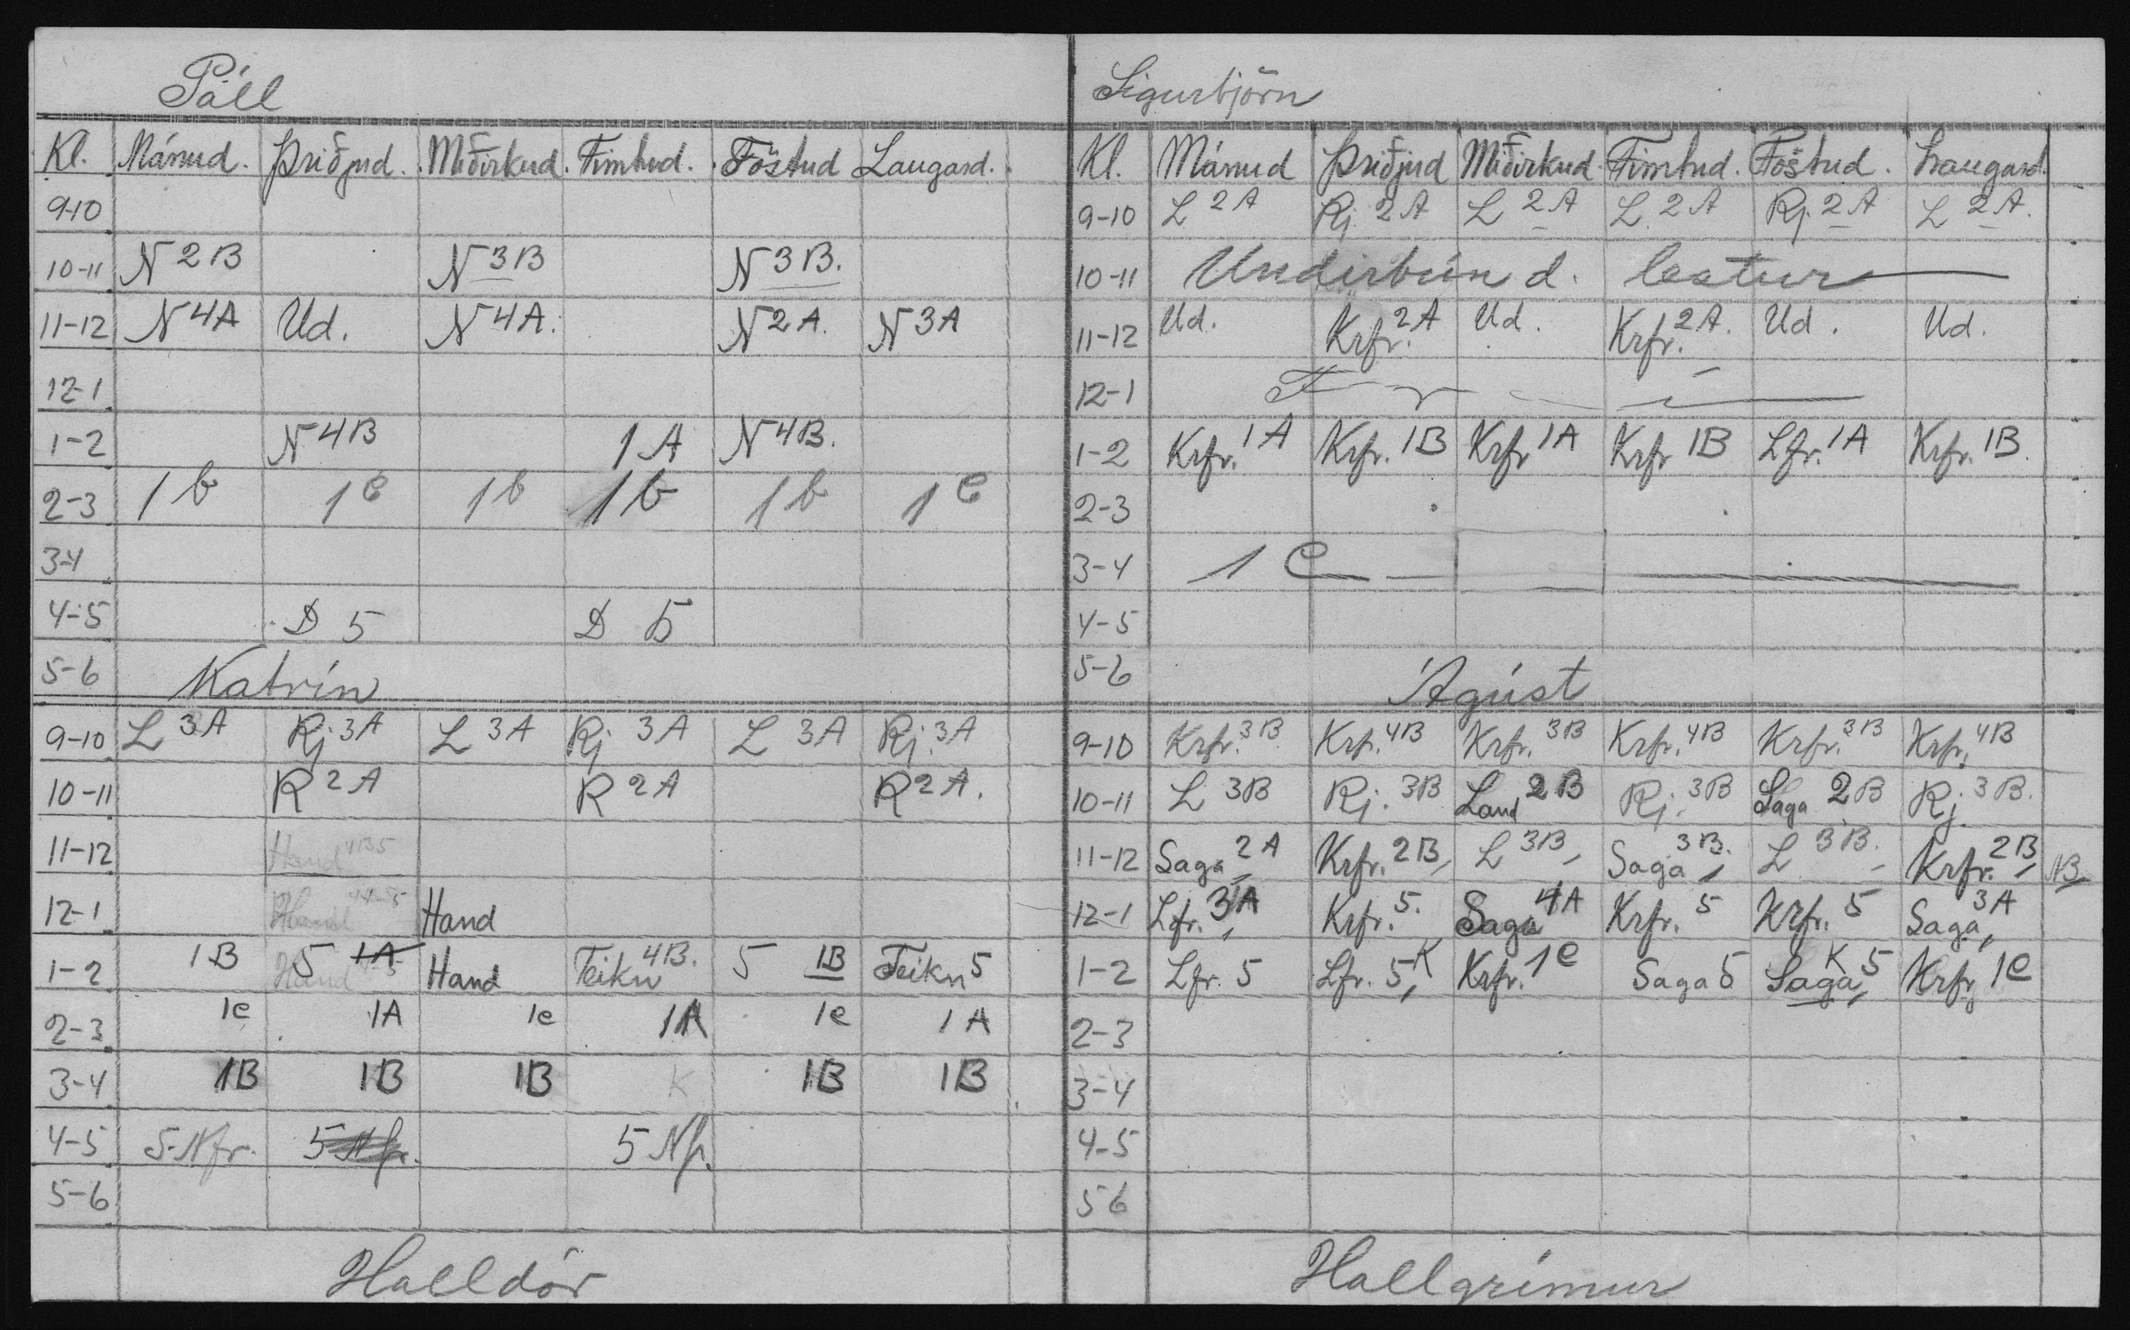 Páll
Kl. Mánud. Þriðjud. Miðvikud. Fimtud. Föstud Laugard.
9-10
10-11 N 2B N 3B N 3B.
11-12 N 4A Ud. N 4A. N 2A. N 3A
12-1
1-2 N 4B 1A N 4B.
2-3 1b 1C 1b 1b 1b 1C
3-4
4-5 D 5 D 5
5-6 Katrín
9-10 L 3A Rj 3A L 3A Rj 3A L 3A Rj. 3A
10-11 R 2A R 2A R 2A.
11-12 Hand 4B5
12-1 Hand Hand
1-2 1B 5 1A Hand Hand Teikn 4B. 5 1B Teikn 5
2-3 1c 1A 1c 1A 1c 1A
3-4 1B 1B 1B K 1B 1B
4-5 5 Nfr. 5 Nfr. 5 Nfr.
5-6
Halldór
Sigurbjörn
Kl. Mánud Þriðjud Miðvikud Fimtud. Föstud. Laugard.
9-10 L 2A Rj 2A L 2A L 2A Rj. 2A L 2A.
10-11 Undirbúnd. lestur
11-12 Ud. Krfr. 2A Ud. Krfr. 2A. Ud. Ud.
12-1
1-2 Krfr. 1A Krfr. 1B Krfr 1A Krfr 1B Lfr. 1A Krfr. 1B.
2-3
3-4 1C
4-5
5-6 Ágúst
9-10 Krfr. 3B Krfr. 4B Krfr. 3B Krfr. 4B Krfr. 3B Krfr. 4B
10-11 L 3B Rj. 3B Land 2B Rj. 3B Saga 2B Rj 3B.
11-12 Saga 2A Krfr. 2B L 3B Saga 3B. L 3B. Krfr. 2B NB
12-1 Lfr. 3A Krfr. 5. Saga 4A Krfr. 5 Krfr. 5 Saga 3A
1-2 Lfr. 5 Lfr. 5 K Krfr. 1C Saga 5 Saga K 5 Krfr 1C
2-3
3-4
4-5
5 6
Hallgrímur